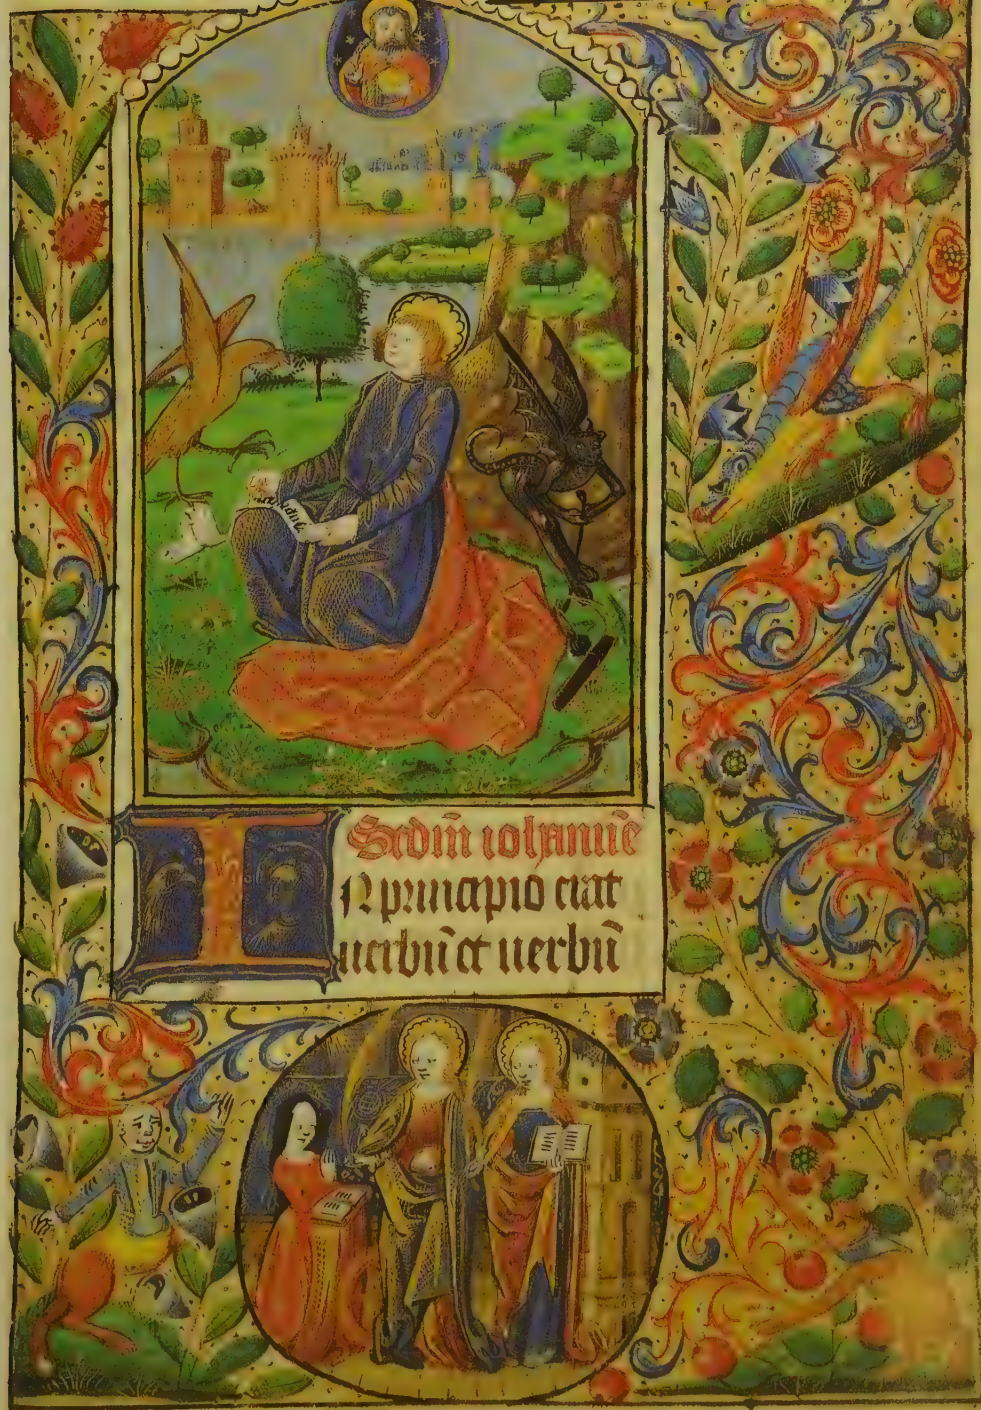 Scdm̄ iohannē
IN principio erat
uerbū et uerbū